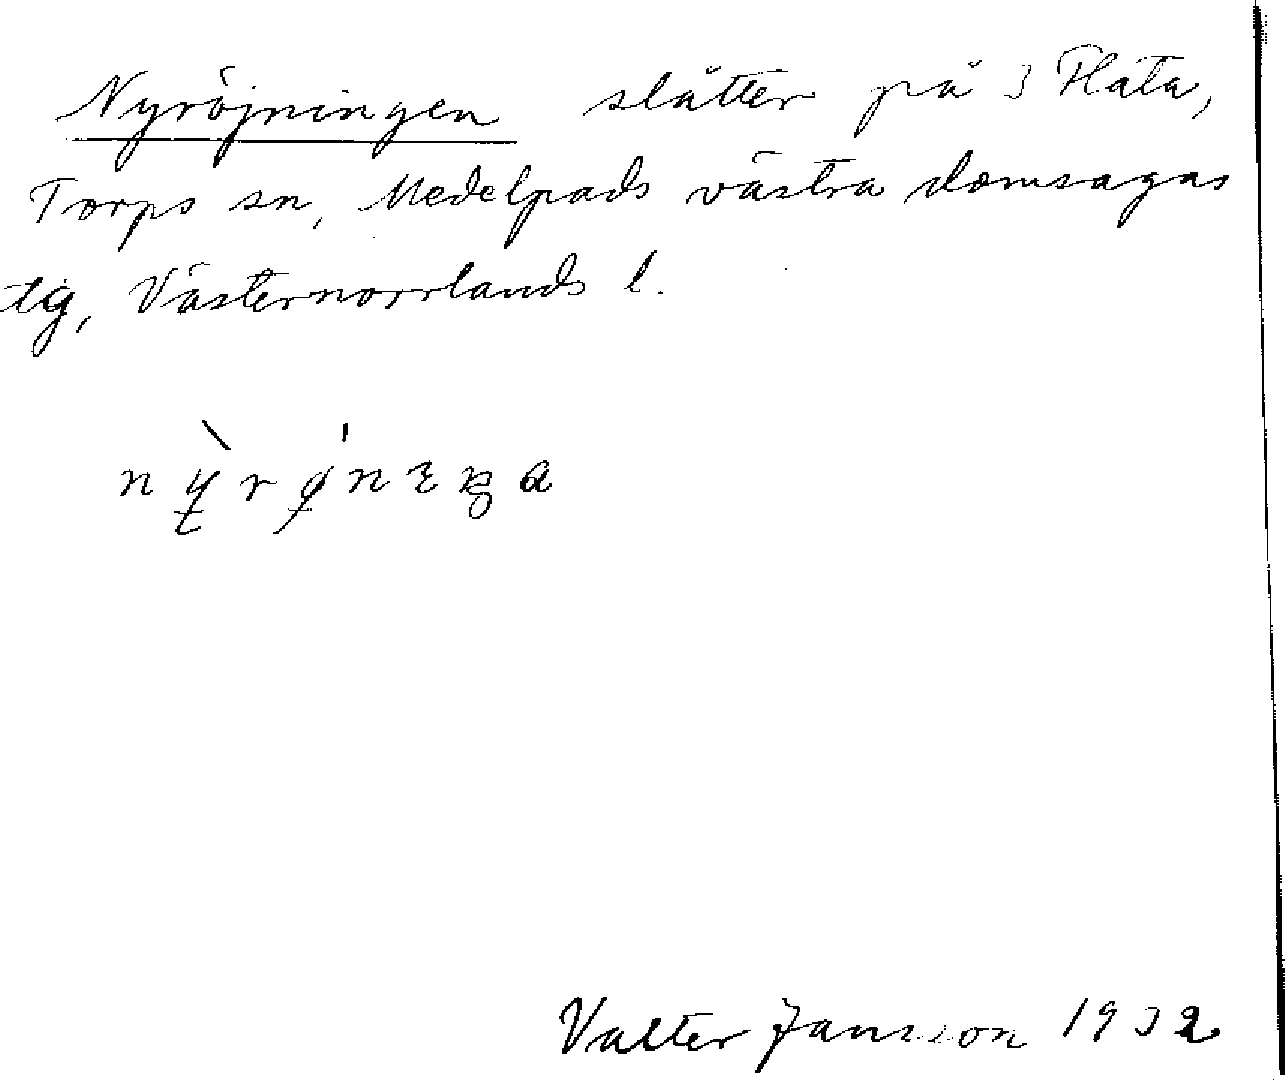 Nyröjningen slåtter på 3 Flåta,
Torps sn, Medelpads västra domsagas
tg, Västernorrlands l.
Valter Jansson 1932